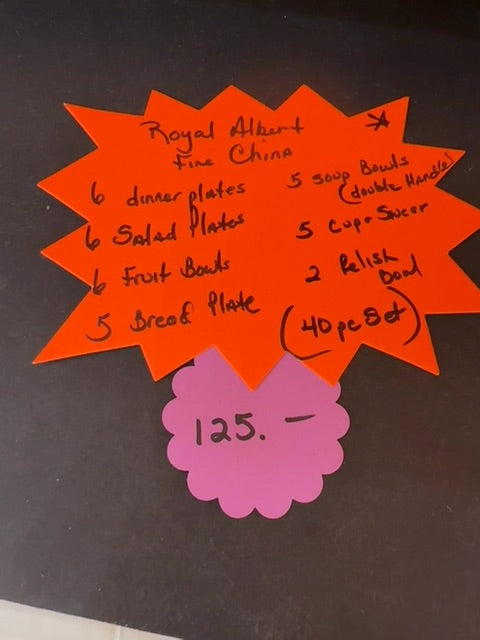 Royal Albert
Fine China
6 dinner plates
6 Salad Plates
6 Fruit Bowls
5 Bread Plate
5 Soup Bowls
(double Handle)
5 Cup + Saucer
2 Relish
Bowl
(40 pc Set)
125. —